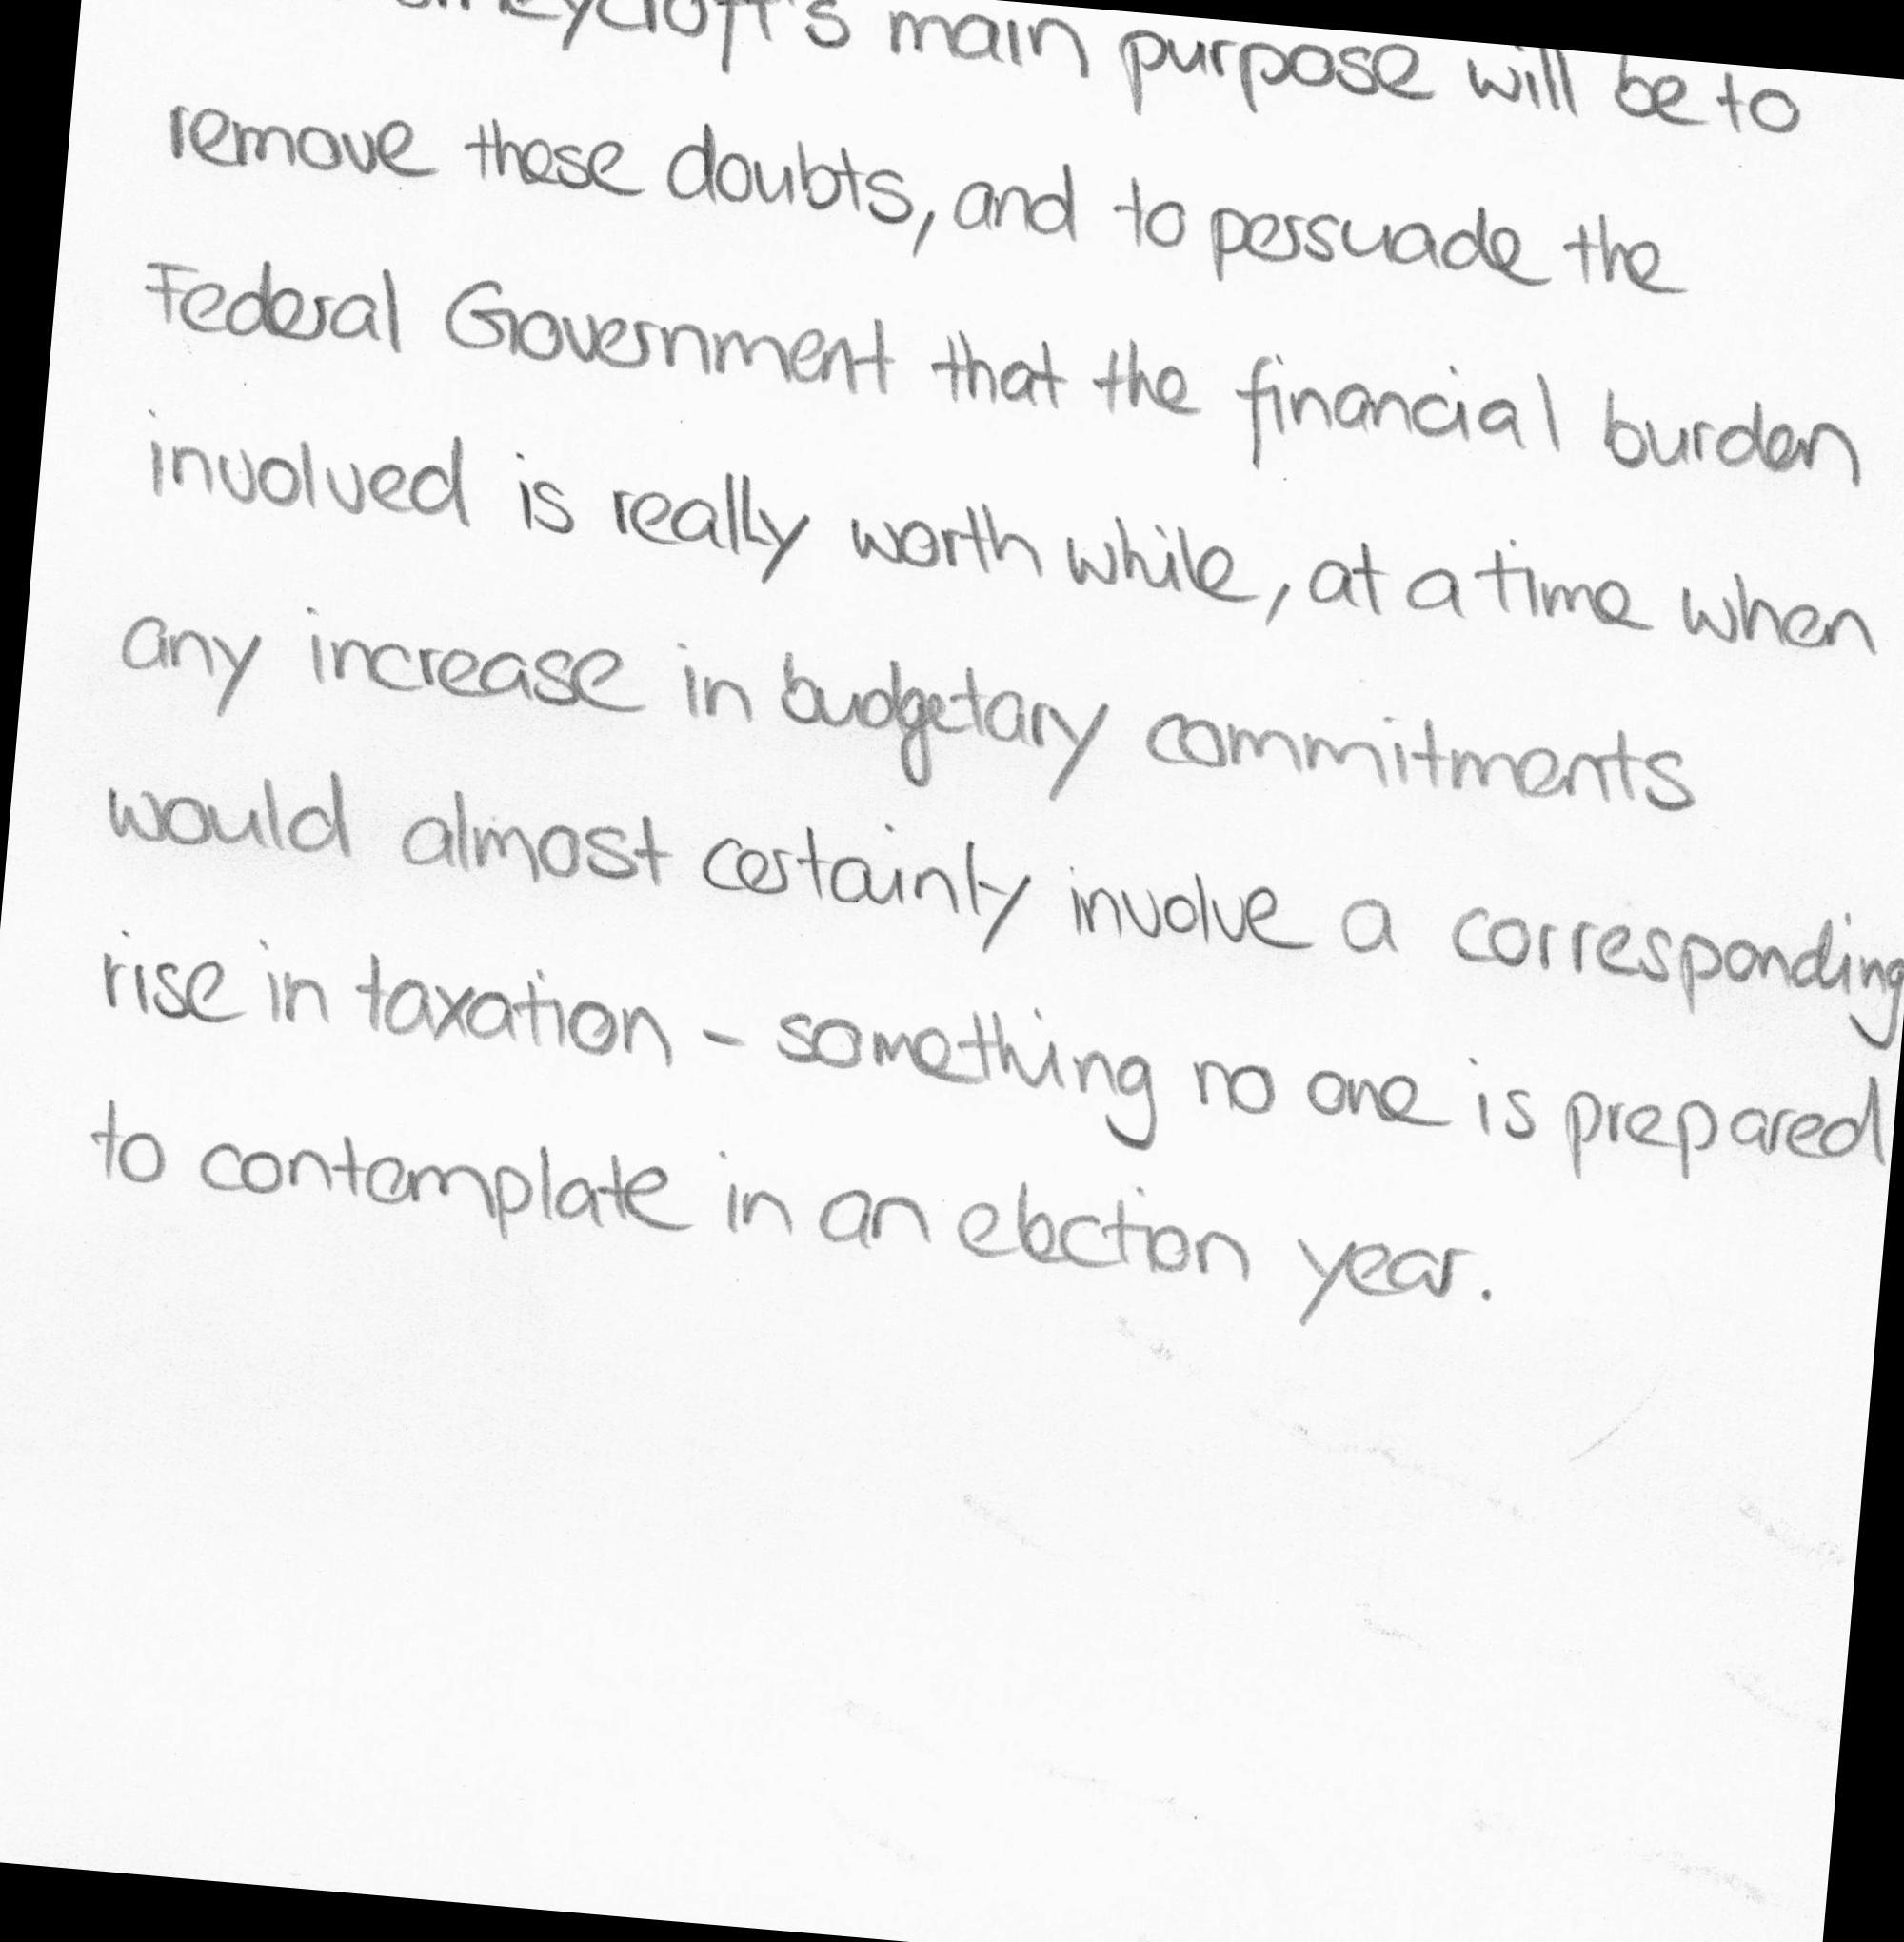 main purpose will be to
remove these doubts, and to persuade the
Federal Government that the financial burden
involved is really worth while, at a time when
any increase in budgetary commitments
would almost certainly involve a corresponding
rise in taxation - something no one is prepared
to contemplate in an election year.